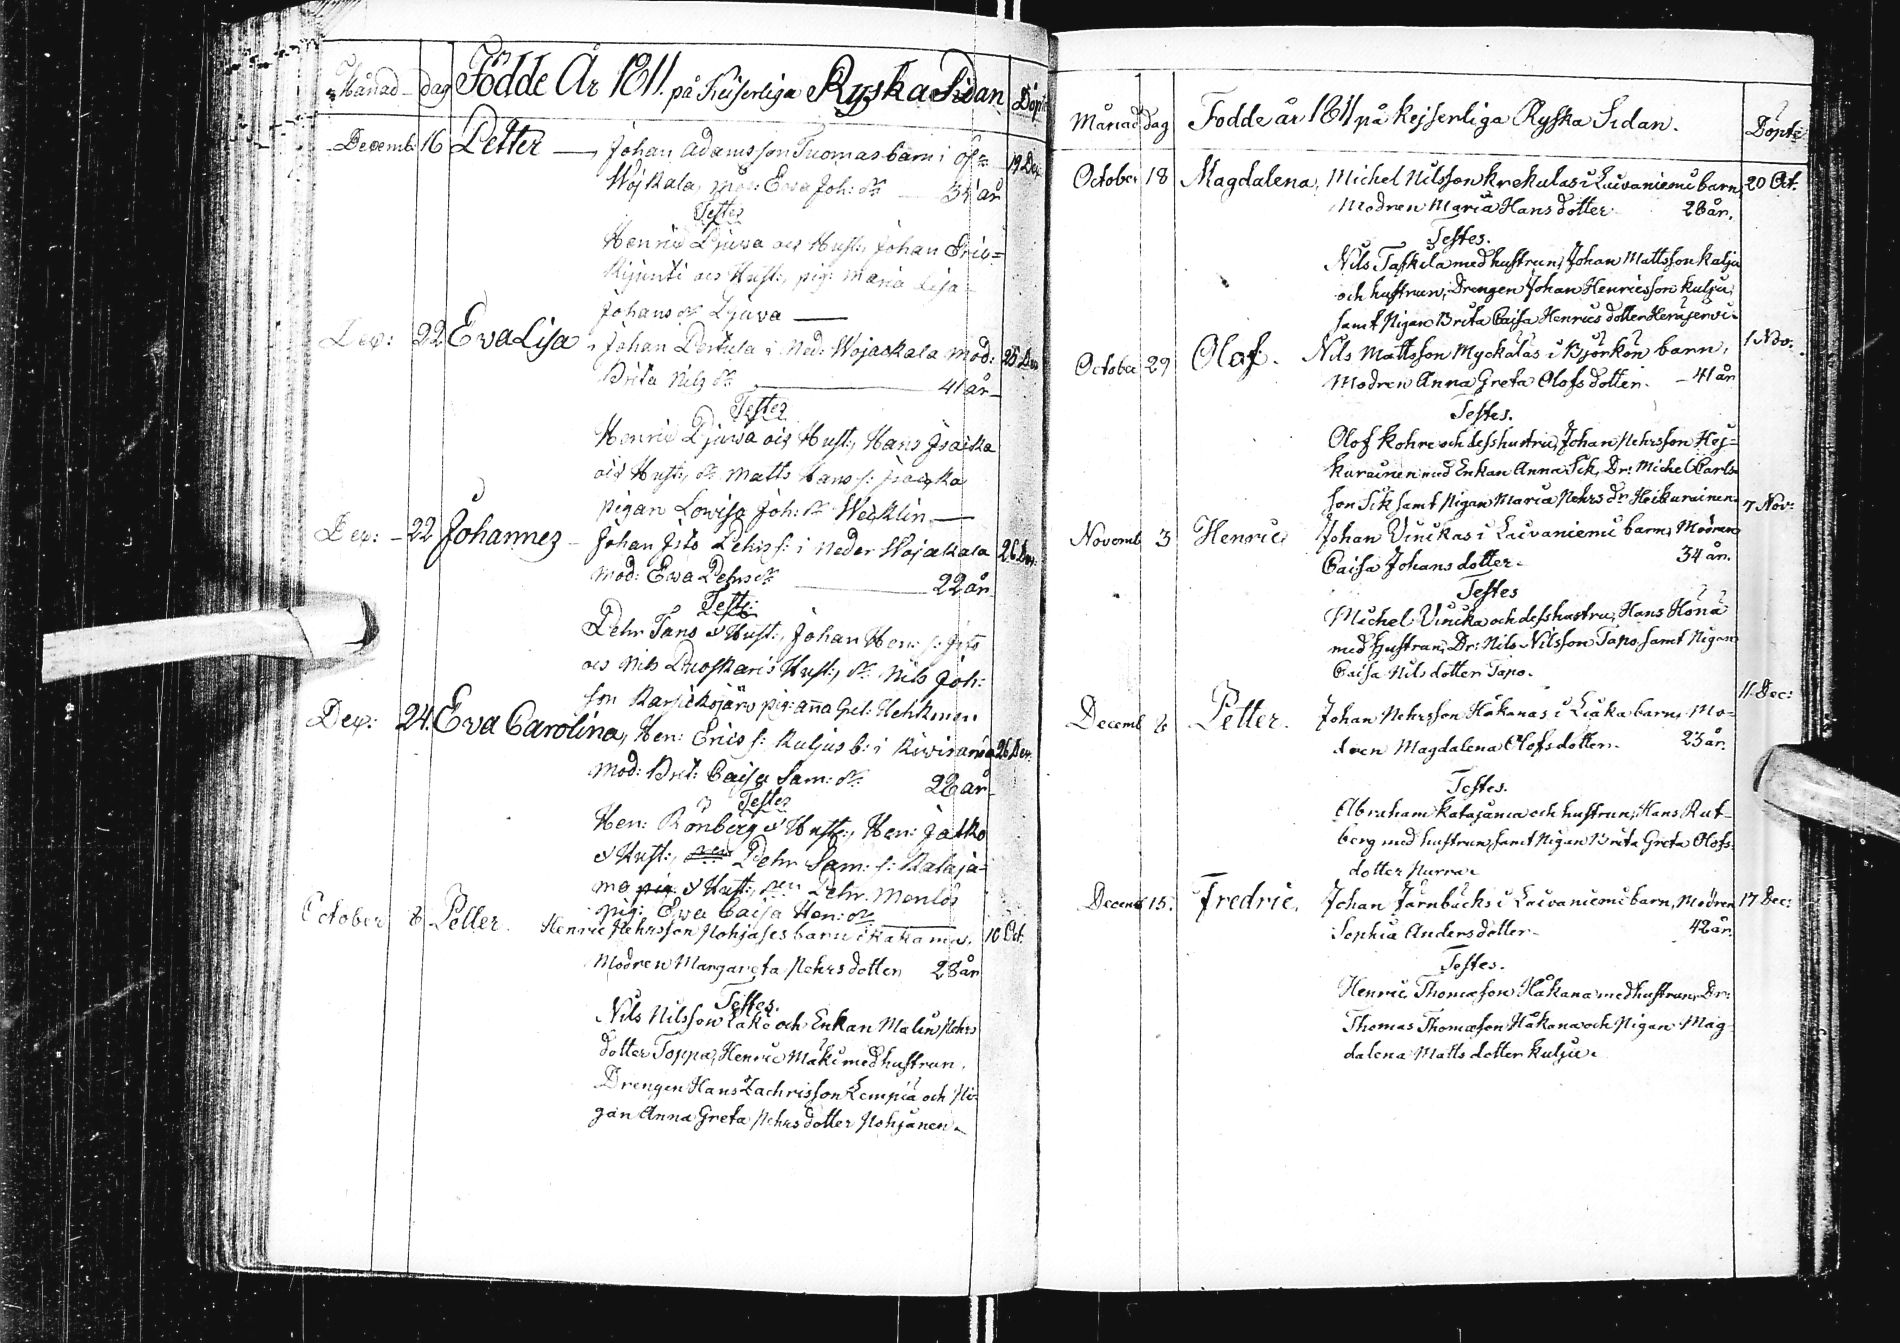 Månad dag Födde År 1811. på Keiserliga Ryska Sidan Döpt
Decemb: 16 Petter — Johan Adamsson Tuomas barn i Öf= 19 Dec.
Wojkala, mod: Ewa Joh: dr — 34 år
Testes
Henric Ljuva och Hust:, Johan Eric=
och Hust:, pig: Maria Lisa
Johans dr Ljuva —
Dec: 22 Eva Lisa, Johan Pertula i Ned: Wojackala mod: 25 Dec
Brita Nils dr — 41 år
Testes
Henric Ljuwa och Hust:, Hans Isacka
och Hust:, dr Matts Hans s: Isacka
pigan Lowisa Joh: dr Wecklin —
Dec: 22 Johannes Johan Isto Pehrs s: i Neder Wojakala 26 Dec.
Mod: Ewa Pehrs dr — 22 år
Test:
Pehr Tano & Hust:, Johan Hen: s: Isto
och Nils Hust:, dr: Nils Joh:
son Karjickojärv pig: Anna Gret: Hehkinen
Dec: 24. Eva Carolina, Hen: Erics s: Kuljus b: i Kiviranta 26 Dec.
Mod: Brit: Caisa Sam: dr 22 år
Testes
Hen: Rönberg & Hust:, Hen: Jatko
& Hust:, Pehr Sam: s: Kataja=
ma & Hust:, Pehr Menlös
pig: Ewa Caisa Hen: dr
October 8 Petter. Henric Pehrsson Pohjases barn i Kakama, 10 Oct.
Modren Margareta Pehrs dotter 28 år
Testes.
Nils Nilsson Lake och Enkan Malin Pehrs
dotter Toppa, Henric Mäki med hustrun,
Drengen Hans Zachrisson Lempiä och Pi=
gan Anna Greta Pehrs dotter Pohjanen.
Månad dag Födde år 1811 på Kejserliga Ryska Sidan. Döpte
October 18 Magdalena, Michel Nilsson Krekulas i Laivaniemi barn, 20 Oct.
Modren Maria Hans dotter 28 år.
Testes.
Nils Taskila med hustrun, Johan Mattsson Kalja
och hustrun, Drengen Johan Henricsson Kulju,
samt Pigan Brita Caisa Henrics dotter Herajervi.
October 29 Olof. Nils Mattsson Myckälas i Björkön barn, 1 Nov.
Modren Anna Greta Olofs dotter. — 41 år
Testes.
Olof Kohre och dess hustru, Johan Pehrsson Hej=
kurainen med Enkan Anna Sik, Dr: Michel Carls=
son Sik samt Pigan Maria Pehrs dr Heikurainen.
Novemb 3 Henric, Johan Vinikas i Laivaniemi barn, Modren 7 Nov:
Caisa Johans dotter. 34 år.
Testes
Michel Vinika och dess hustru, Hans Hönä
med hustrun, Dr: Nils Nilsson Tapo, samt Pigan
Caisa Nils dotter Tapo.
Decemb 8 Petter. Johan Pehrsson Håkanas i Liaka barn, Mo= 11. Dec:
dren Magdalena Olofs dotter. 23 år.
Testes.
Abraham Katajama och hustrun, Hans Rut=
berg med hustrun, samt Pigan Brita Greta Olofs=
dotter Hurra.
Decemb 15. Fredric, Johan Järnbäcks i Laivaniemi barn, Modren 17 Dec:
Sophia Anders dotter. 42 år.
Testes.
Henric Thomæson Håkana med hustrun, Dr:
Thomas Thomæson Håkana och Pigan Mag=
dalena Matts dotter Kulju.